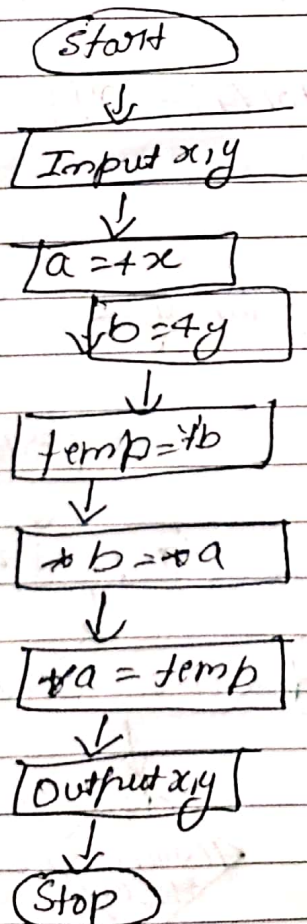 Start
Input x,y
a = +x
b = 4y
temp = *b
*b = *a
*a = temp
Output x,y
Stop